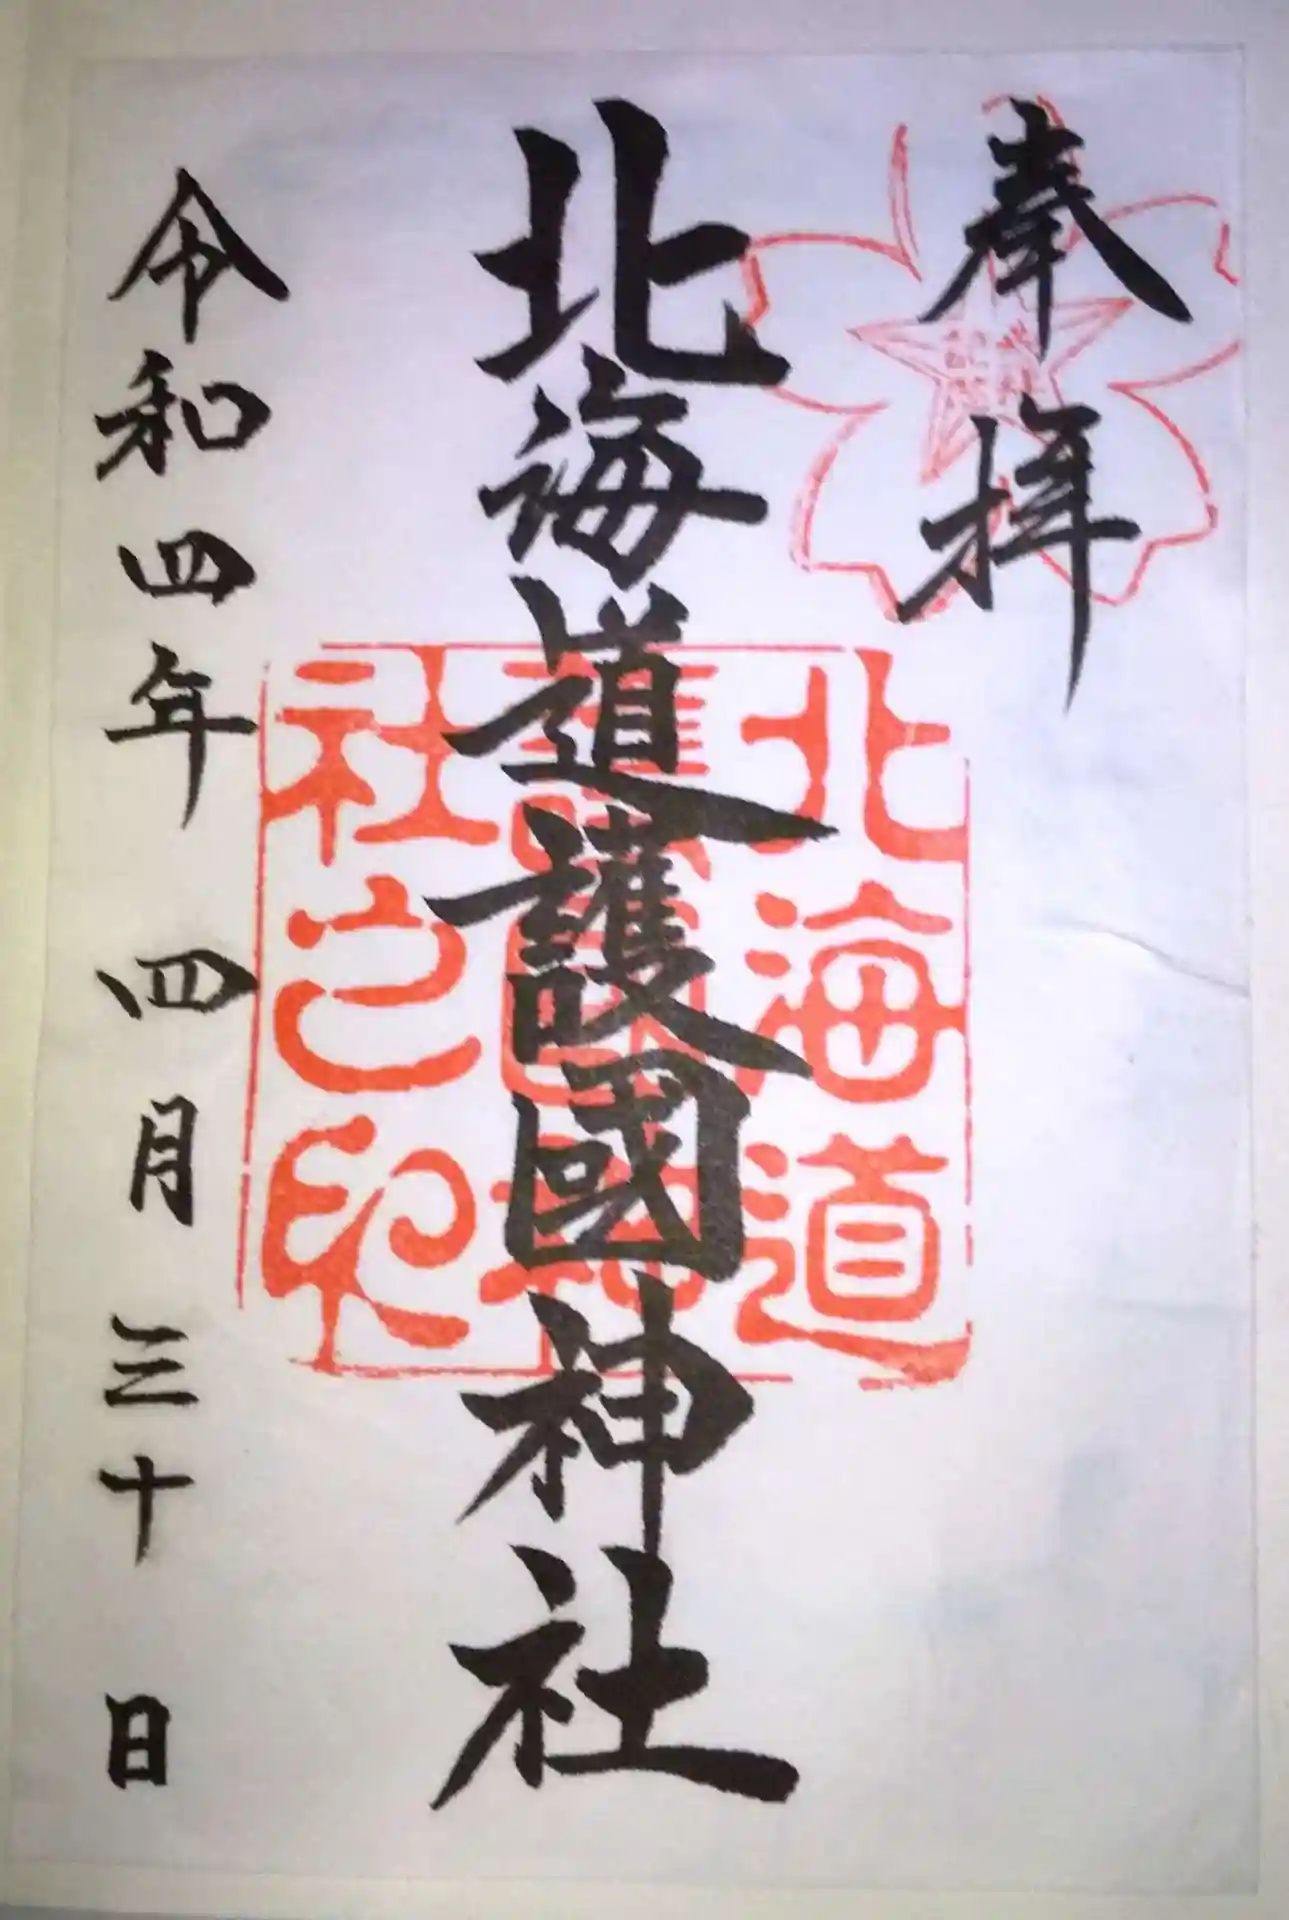 奉拝
北海道護國神社
北海道
護國神
社之印
令和四年四月三十日